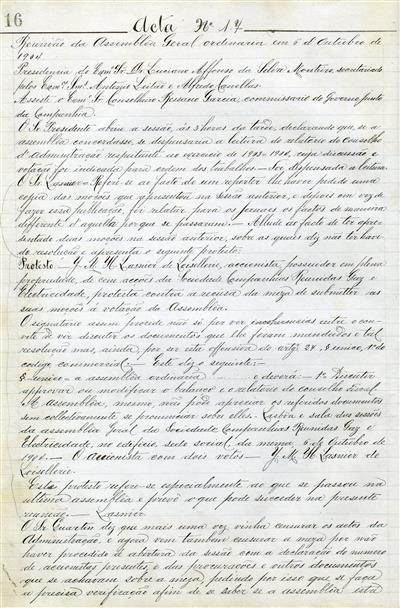 16
Acta Nº 17
Reunião da Assembléa Geral ordinaria em 6 d'Outubro de
1904.
Presidencia do Exmº Sr. Dr. Luciano Affonso da Silva Monteiro, secretariado
pelos Exmºs Snrs. Antonio Leitão e Alfredo Canellas.
Assiste o Exmº Sr. Conselheiro Ressano Garcia, commissario do Governo junto
da Companhia.
O Sr. Presidente abriu a sessão, ás 3 horas da tarde, declarando que, se a
assembléa concordasse, se dispensaria a leitura do relatorio do Conselho
d'Administração respeitante ao exercicio de 1903-1904, cuja discussão e
votação foi indicada para ordem dos trabalhos. — Foi dispensada a leitura.
O Sr. Lasmier — Refere-se ao facto de um reporter lhe haver pedido uma
copia das moções que apresentou na sessão anterior, e depois em vez de
fazer essa publicação, foi relatar para os jornaes os factos de maneira
differente d'aquella porque se passaram. — Allude ao facto de ter apre-
sentado duas moções na sessão anterior, sobre as quaes diz não ter havi-
do resolução e apresenta o seguinte protesto.
Protesto — J. M. H. Lasmier de Loisellerie, accionista, possuidor em plena
propriedade, de cem acções da Sociedade Companhias Reunidas Gaz e
Electricidade, protesta contra a recusa da meza de submetter as
suas moções á votação da Assembléa.
O signatario assim procede não só por ver incoherencias entre o con-
vite de vir discutir os documentos que lhe foram mandados e tal
resolução mas, ainda, por ser esta offensiva do artgº 24, § unico, 1º do
codigo commercial. — Este diz o seguinte:
§ unico — a assembléa ordinaria — deverá: — 1º Discutir
approvar ou modificar o balanço e o relatorio do conselho fiscal.
A Assembléa, mesmo, não póde apreciar os referidos documentos
sem collectivamente se pronunciar sobre elles. Lisboa e sala das sessões
da assembléa Geral da Sociedade Companhias Reunidas Gaz e
Electricidade, no edificio, sede social da mesma 6 de Outubro de
1904. — O accionista com dois votos — J. M. H. Lasmier de
Loisellerie.
Este protesto refere-se especialmente ao que se passou na
ultima assembléa e prevê o que póde succeder na presente
reunião. — Lasmier.
O Sr. Quartin diz que mais uma vez vinha censurar os actos da
Administração, e agora vem tambem censurar a meza por não
haver procedido á abertura da sessão com a declaração do numero
de accionistas presentes, e das procurações e outros documentos
que se achavam sobre a meza, pedindo por isso que se faça
a precisa verificação afim de se saber se a assembléa está